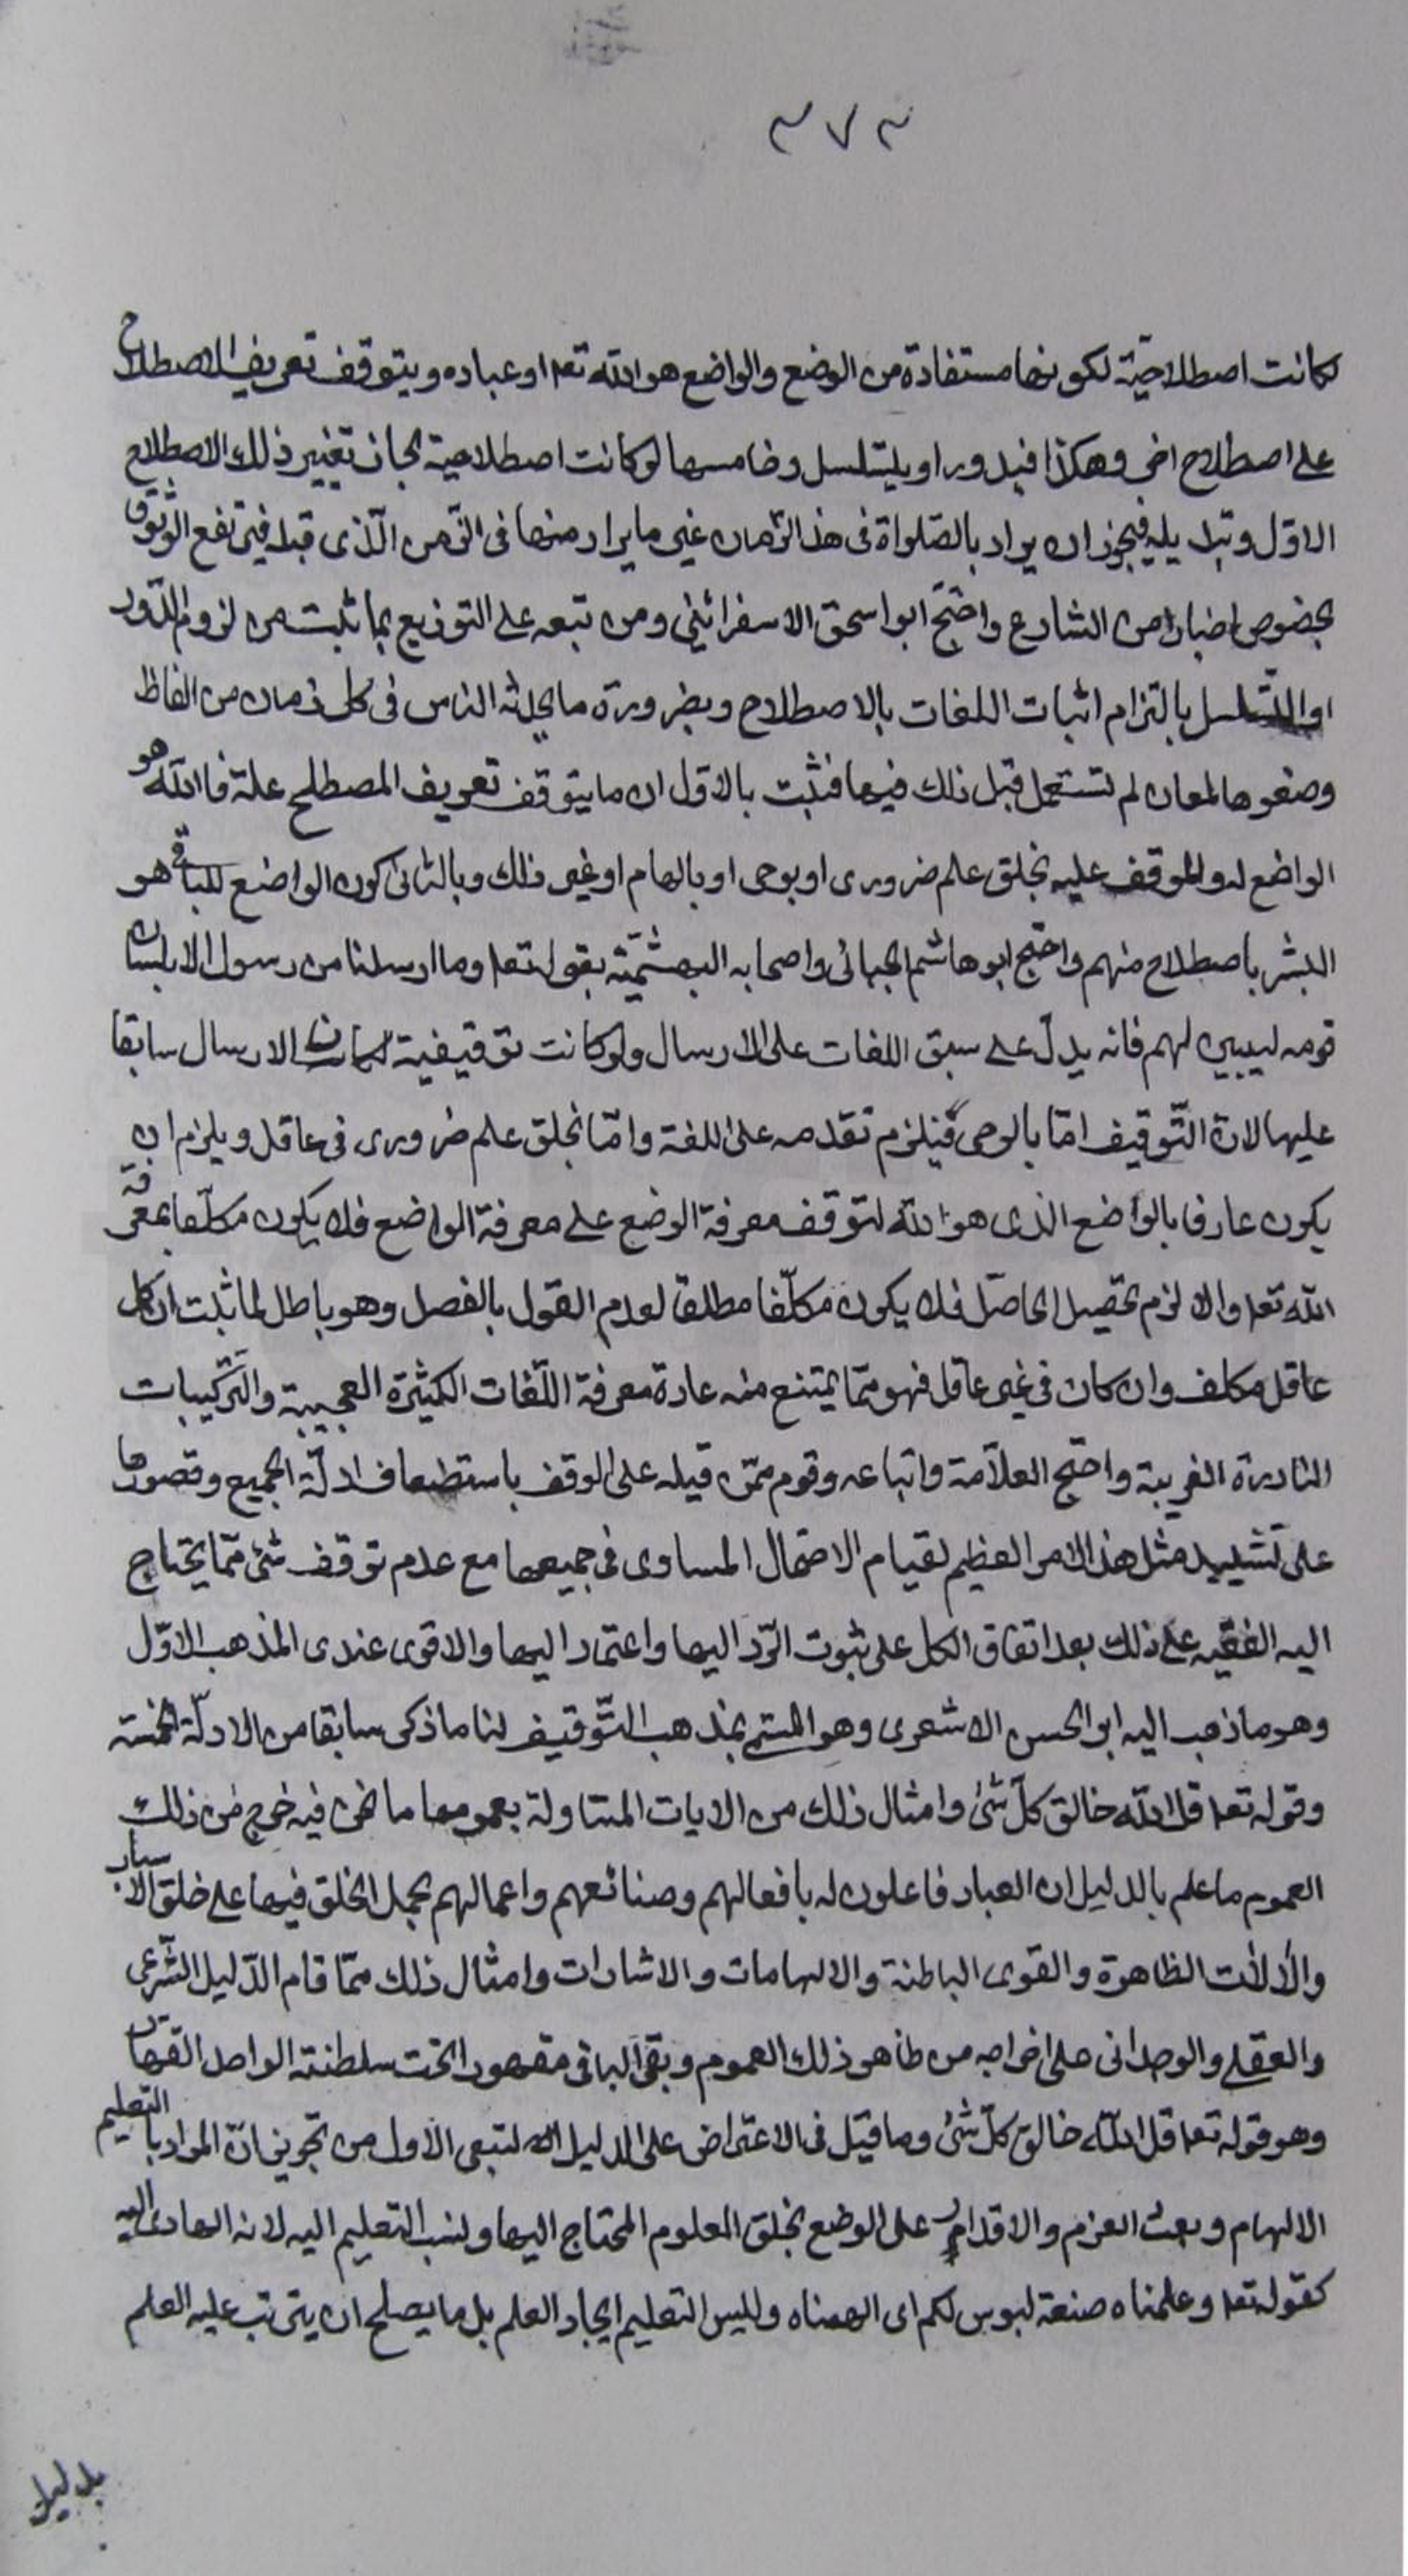 ٣٧٣
كانت اصطلاحيّة لكونها مستفادة من الوضع والواضع هو الله تعا او عباده ويتوقف تعريف الاصطلاح
على اصطلاح اخر وهكذا فيدور او يتسلسل وخامسها لو كانت اصطلاحية لجاز تغيير ذلك الاصطلاح
الاوّل وتبديله فيجوز ان يراد بالصّلواة فى هذا الزّمان غير ما يراد منها فى الزّمن الّذى قبله فيرتفع الوثوق
بخصوص اخبارا من الشارع واحتجّ ابو اسحق الاسفرائينى ومن تبعه على التوزيع بما ثبت من لزوم الدّور
او التّسلسل بالتزام اثبات اللغات بالاصطلاح وبضرورة ما يحدثه الناس فى كل زمان من الفاظ
وضعوها لمعان لم تستعمل قبل ذلك فيها فثبت بالاوّل ان ما يتوقف تعريف المصطلح علته فالله هو
الواضع له والموقف عليه بخلق علم ضرورى او بوحى او بالهام او غير ذلك وبالثانى كون الواضع للباقى هو
البشر باصطلاح منهم واحتج ابو هاشم الجبائى واصحابه البهشميّة بقوله تعا وما ارسلنا من رسول الا بلسان
قومه ليبين لهم فانه يدلّ على سبق اللغات على الارسال ولو كانت توقيفية لكان الارسال سابقا
عليها لانّ التّوقيف امّا بالوحى فيلزم تقدمه على اللغة وامّا بخلق علم ضرورى فى عاقل ويلزم ان
يكون عارفا بالواضع الذى هو الله لتوقف معرفة الوضع على معرفة الواضع فلا يكون مكلّفا بمعرفة
الله تعا والا لزم تحصيل الحاصل فلا يكون مكلّفا مطلقا لعدم القول بالفصل وهو باطل لما ثبت ان كل
عاقل مكلف وان كان فى غير عاقل فهو ممّا يمتنع منه عادة معرفة اللّغات الكثيرة العجيبة والتّركيبات
النادرة الغريبة واحتج العلاّمة واتباعه وقوم ممّن قبله على الوقف باستضعاف ادلّة الجميع وقصورها
على تشييد مثل هذا الامر العظيم لقيام الاحتمال المساوى فى جميعها مع عدم توقف شئ ممّا يحتاج
اليه الفقيه على ذلك بعد اتفاق الكل على ثبوت الرّد اليها واعتماد اليها والاقوى عندى المذهب الاوّل
وهو ما ذهب اليه ابو الحسن الاشعرى وهو المسمى بمذهب التّوقيف لنا ما ذكر سابقا من الادلّة الخمسة
وقوله تعا قل الله خالق كلّ شئ وامثال ذلك من الايات المتناولة بعمومها ما نحن فيه خرج من ذلك
العموم ما علم بالدليل ان العباد فاعلون له بافعالهم وصنائعهم واعمالهم بحمل الخلق فيها على خلق الاسباب
والألات الظاهرة والقوى الباطنة والالهامات والاشارات وامثال ذلك ممّا قام الدّليل الشّرعى
والعقلى والوجدانى على اخراجه من ظاهر ذلك العموم وبقى الباقى مقهورا تحت سلطنة الواحد القهار
وهو قوله تعا قل الله خالق كلّ شئ وما قيل فى الاعتراض على الدليل النقلى الاول من تجويز انّ المراد بالتعليم
الالهام وبعث العزم والاقدام على الوضع بخلق العلوم المحتاج اليها ونسب التعليم اليه لانه الهادى اليه
كقوله تعا وعلمناه صنعة لبوس لكم اى الهمناه وليس التعليم ايجاد العلم بل ما يصلح ان يترتب عليه العلم
بدليل